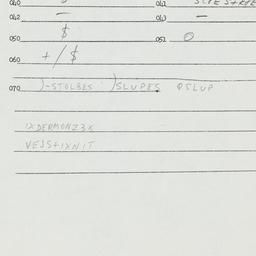 040 041
042 — 043 —
050 $ 051 O
060 + / $
070 )-STOLBES )SLUPES PSLUP
1XDERMONZ3X
VEJSTIXNIT